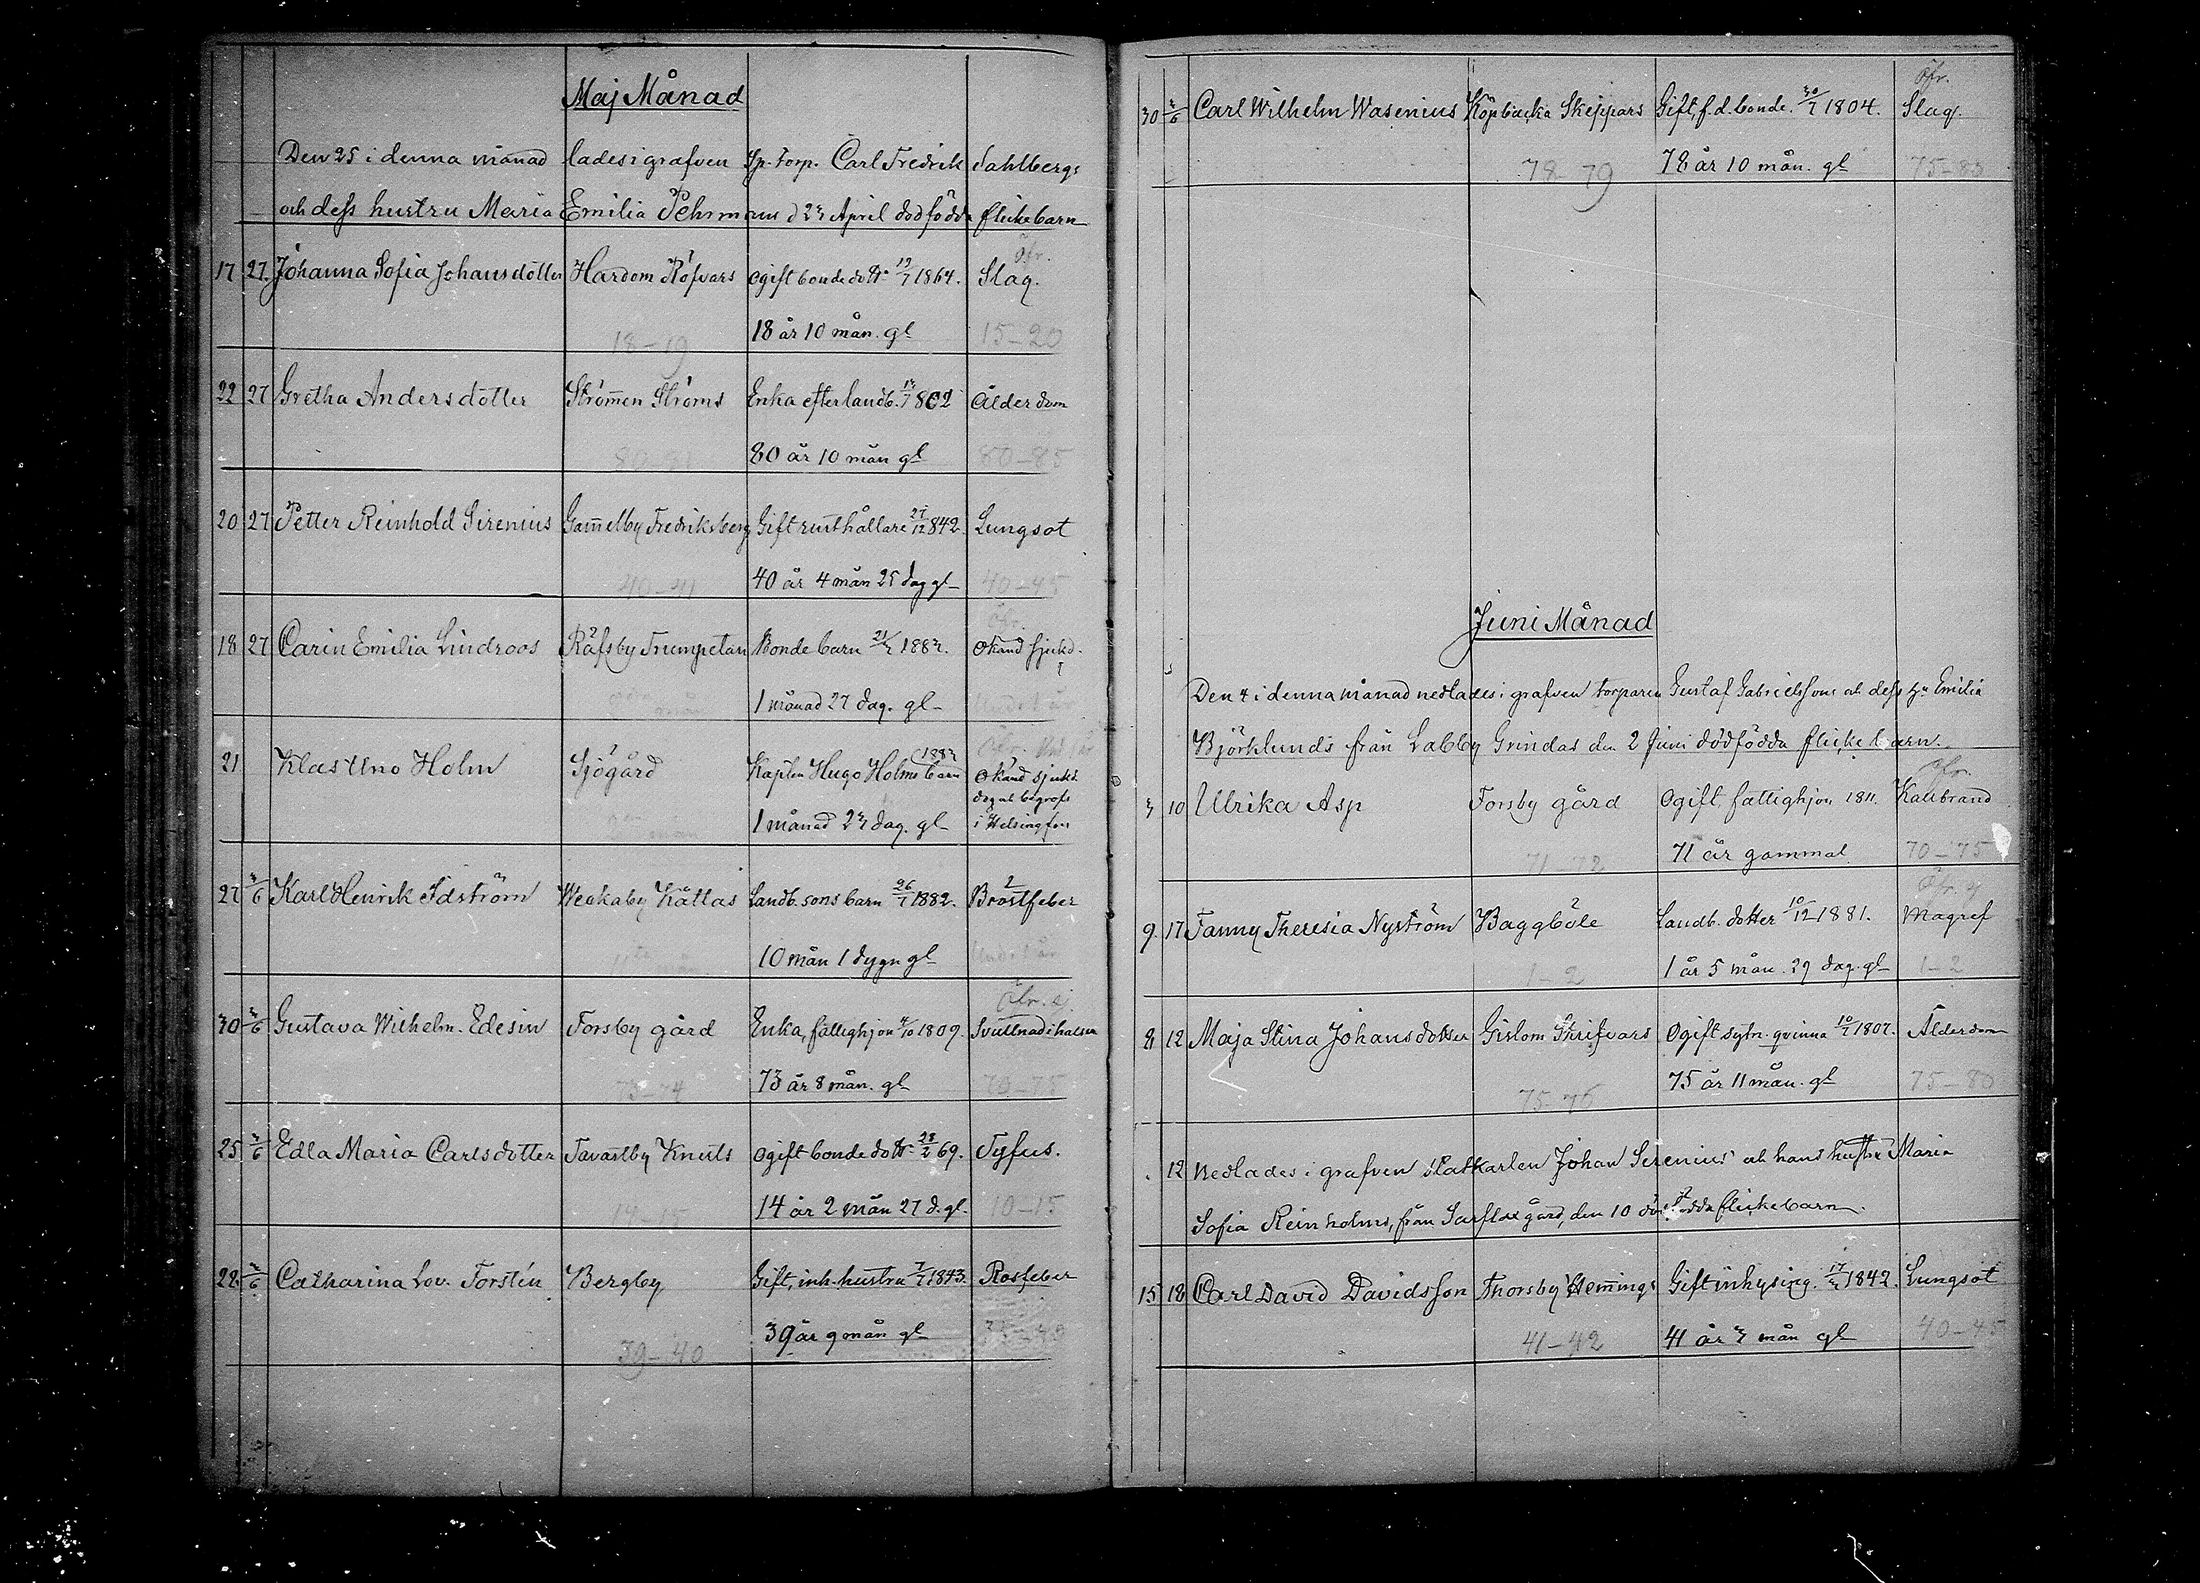 Maj Månad
Den 25 i denna månad lades i grafven Sp. torp. Carl Fredrik Dahlbergs
och dess hustru Maria Emilia Pehrmans d 23 April dödfödda flickebarn
Öfr.
17 27. Johanna Sofia Johansdotter Hardom Röfvars ogift bondedottr 19/7 1864. Slag.
18-19 18 år 10 mån. gl 15-20
22 27 Gretha Andersdotter Strömen Ströms Enka efter landb. 1802 Ålderdom
80 år 10 mån gl 80-85
20 27 Petter Reinhold Sirenius Gam̄elby Fredriksberg Gift rusthållare 27/12 842. Lungsot
40-41 40 år 4 mån 25 dag gl 40-45
Öfr.
18 27 Carin Emilia Lindroos Räfsby Trumpetars Bonde barn 21/3 1883. Okänd sjukd.
1 månad 27 dag. gl
1883
21 Klas Uno Holm Sjögård Kapten Hugo Holms barn Okänd sjukd.
dog och begrofs
1 månad 23 dag. gl i Helsingfors
27 3/6 Karl Henrik Idström Weckaby Kättas Landb. sons barn 26/7 1882. Bröstfeber
10 mån 1 dygn gl
Öfr.
30 3/6 Gustava Wilhelm. Edesin Forsby gård Enka, fattighjon 4/10 1809. Svullnad i halsen
73-74 73 år 8 mån. gl 70-75
25 3/6 Edla Maria Carlsdotter Tavastby Knuts ogift bondedottr 28/2 69. Tyfus.
14-15 14 år 2 mån 27 d. gl. 10-15
28 3/6 Catharina Lov. Forstén Bergby Gift, inh. hustru 1843. Rosfeber
39-40 39 år 9 mån gl
Öfr.
30 3/6 Carl Wilhelm Wasenius Köpbacka Skeppars Gift, f.d. bonde. 30/7 1804. Slag.
78-79 78 år 10 mån. gl 75-80
Juni Månad
Den 4 i denna månad nedlades i grafven torparen Gustaf Gabrielssons och dess hu Emilia
Björklunds från Labby Grindas den 2 Juni dödfödda flickebarn.
Öfr.
3 10 Ulrika Asp Forsby gård Ogift, fattighjon 1811. Kallbrand
71-72 71 år gammal 70-75
Öfr.
9. 17 Fanny Theresia Nyström Baggböle Landb. dotter 10/12 1881. Magref
1-2 1 år 5 mån. 29 dag. gl 1-2
8 12 Maja Stina Johansdotter Gislom Skrifvars Ogift sytn. qvinna 10/7 1807. Ålderdom
75-76 75 år 11 mån. gl 75-80
12 Nedlades i grafven statkarlen Johan Serenius' och hans hustru Maria
Sofia Reinholms, från Sarflax gård, den 10 dödfödda flickebarn.
15 18 Carl David Davidsson Thorsby Hem̄ings Gift inhysing. 1842. Lungsot
41-42 41 år 3 mån gl 40-45